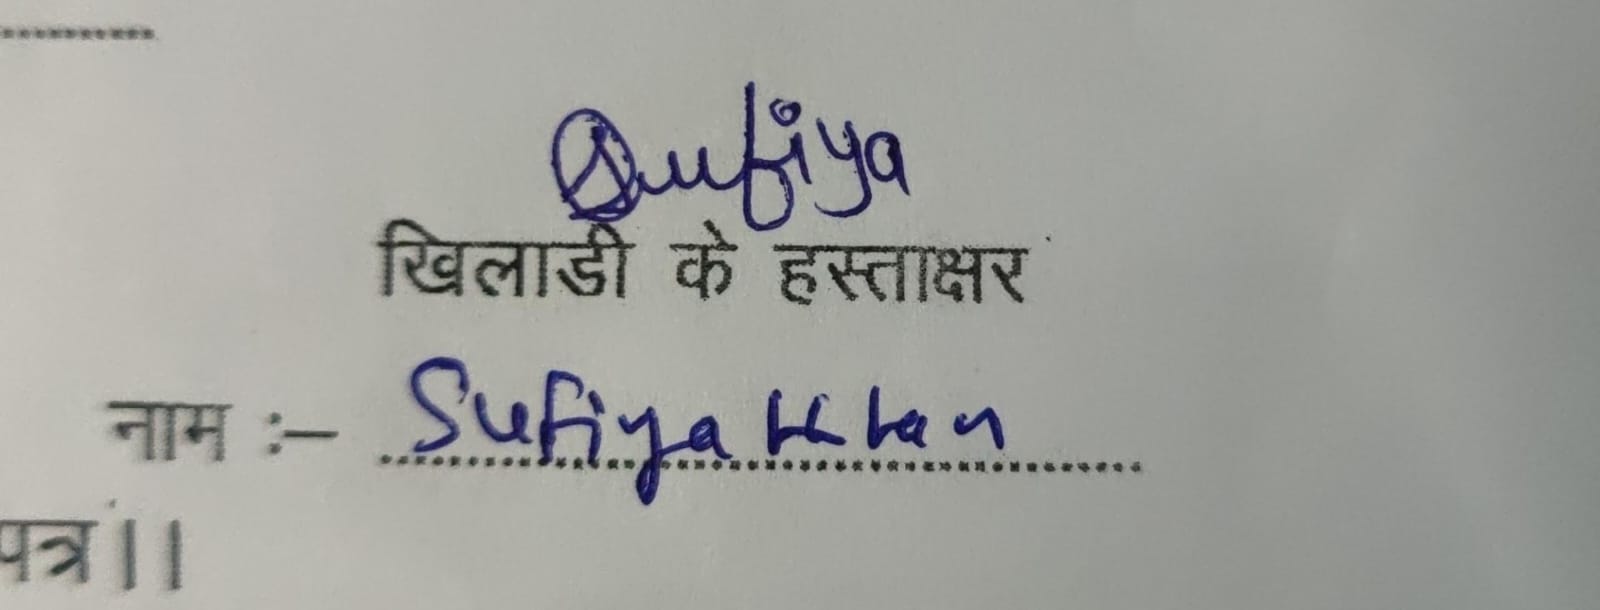 Sufiya
खिलाडी के हस्ताक्षर
नाम :- Sufiya Khan
पत्र।।